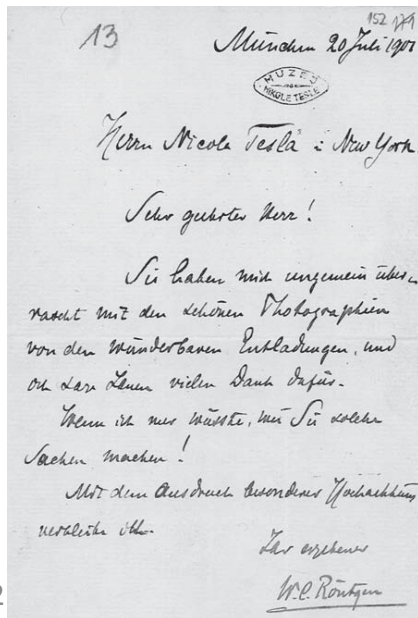 152 171
13
München 20 Juli 1901
MUZEJ
NIKOLE TESLE
Herrn Nicola Tesla i New York
Sehr geehrter Herr!
Sie haben mich ungemein über-
rascht mit den schönen Photographien
von den wunderbaren Entladungen, und
ich sage Ihnen vielen Dank dafür.
Wenn ich nur wüsste, wie Sie solche
Sachen machen!
Mit dem Ausdruck besonderer Hochachtung
verbleibe ich
Ihr ergebener
W. C. Röntgen
2